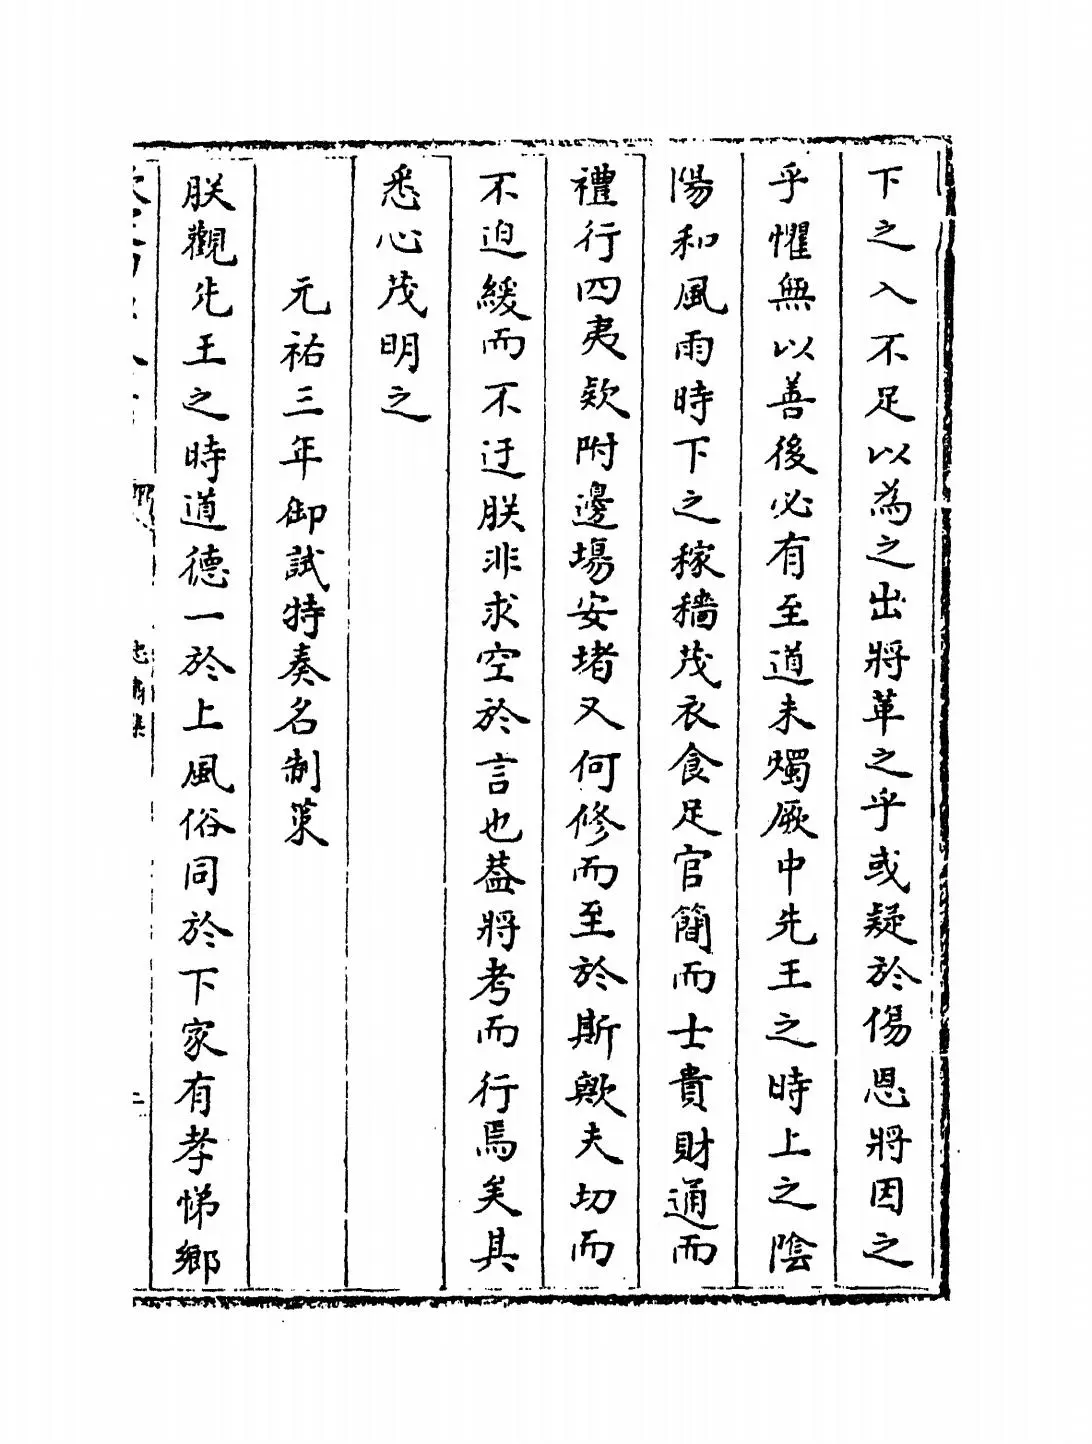 下之入不足以為之出將革之乎或疑於傷恩將因之
乎懼無以善後必有至道未燭厥中先王之時上之陰
陽和風雨時下之稼穡茂衣食足官簡而士貴財通而
禮行四夷欵附邊場安堵又何修而至於斯歟夫切而
不迫緩而不迂朕非求空於言也葢將考而行焉矣具
悉心茂明之
元祐三年御試特奏名制策
朕觀先王之時道德一於上風俗同於下家有孝悌鄉